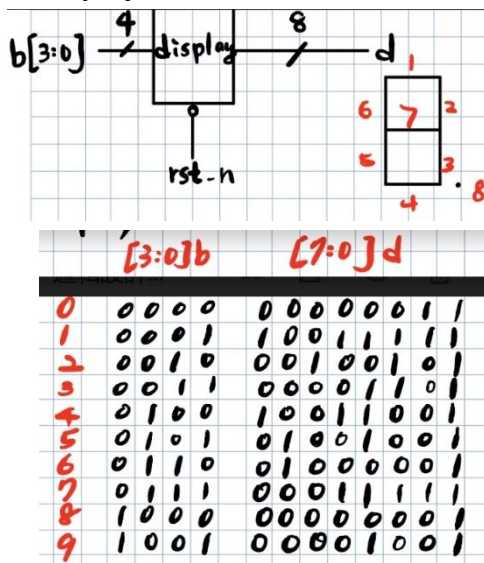 4 8
b[3:0] display d
1
6 7 2
5 3
4 8
rst_n
[3:0]b [7:0]d
0 0 0 0 0 0 0 0 0 0 0 1 1
1 0 0 0 1 1 0 0 1 1 1 1 1
2 0 0 1 0 0 0 1 0 0 1 0 1
3 0 0 1 1 0 0 0 0 1 1 0 1
4 0 1 0 0 1 0 0 1 1 0 0 1
5 0 1 0 1 0 1 0 0 1 0 0 1
6 0 1 1 0 0 1 0 0 0 0 0 1
7 0 1 1 1 0 0 0 1 1 1 1 1
8 1 0 0 0 0 0 0 0 0 0 0 1
9 1 0 0 1 0 0 0 0 1 0 0 1